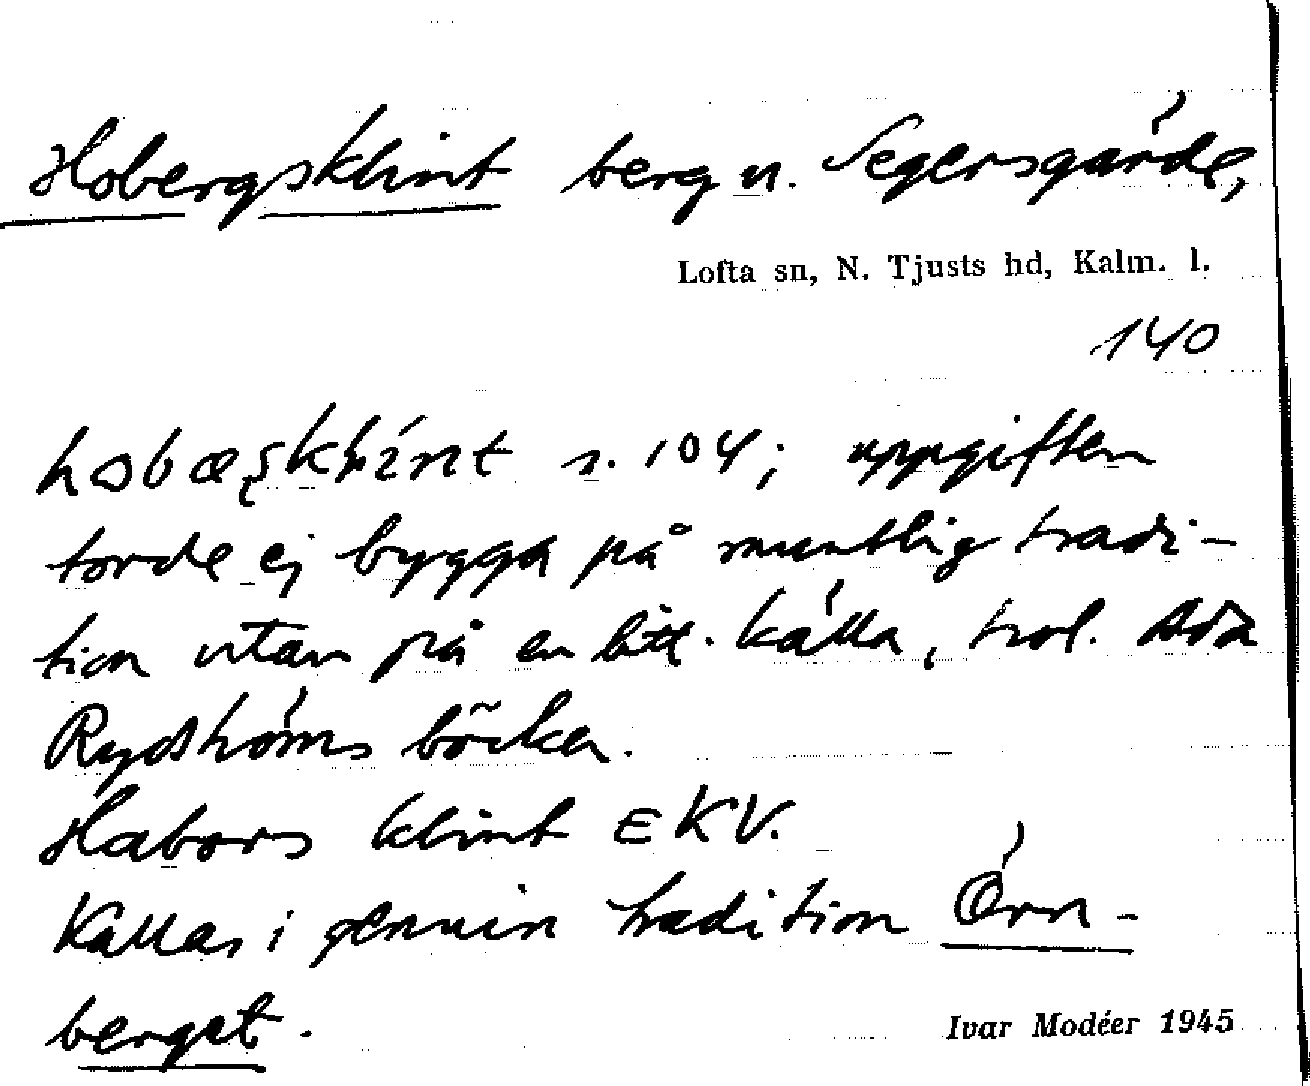 Hobergsklint berg n. Segersgärde,
Lofta sn, N. Tjusts hd, Kalm. l.
140
s. 104; uppgiften
torde ej bygga på muntlig tradi-
tion utan på en litt. källa, trol. Ada
Rydströms böcker.
Habors klint EKV.
Kallas i genuin tradition Örn-
berget.
Ivar Modéer 1945